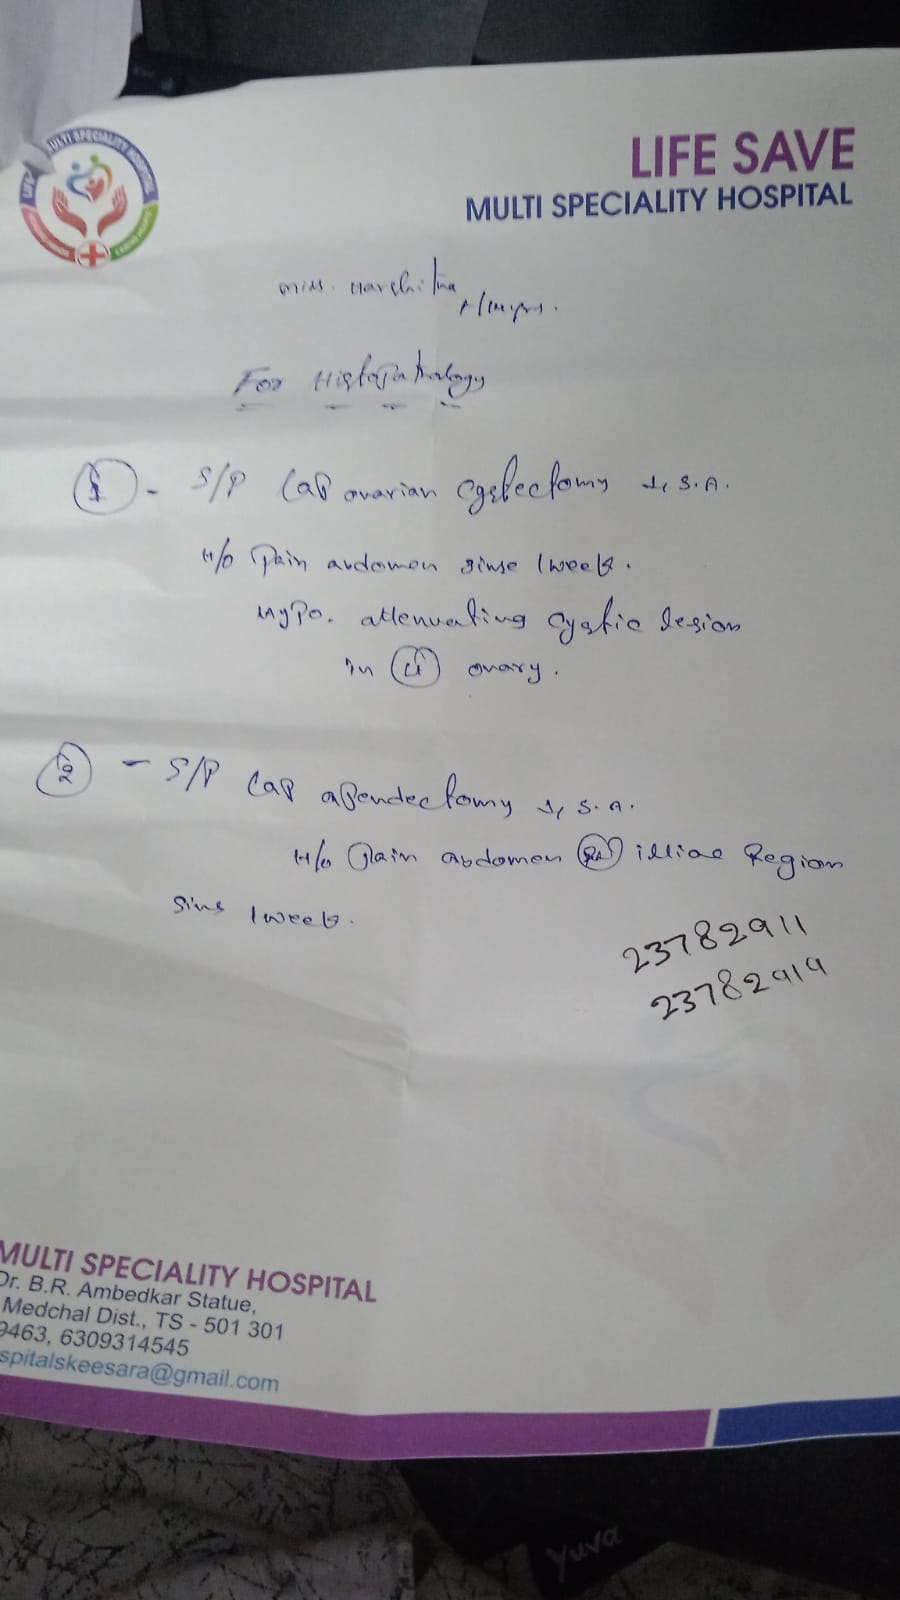 MULTI SPECIALITY HOSPITAL
LIFE SAVE
MULTI SPECIALITY HOSPITAL
Miss. Harshitha
For Histopathology
① - S/P Lap ovarian cystectomy S.A.
H/o Pain abdomen sinse 1 week.
Hypo. attenuating cystic lesion
in Lt ovary.
② - S/P Lap apendectomy S.A.
H/o Pain abdomen Rt illiac Region
Sins 1 week.
23782911
23782919
MULTI SPECIALITY HOSPITAL
Dr. B.R. Ambedkar Statue,
Medchal Dist., TS - 501 301
9463, 6309314545
spitalskeesara@gmail.com
Yuva